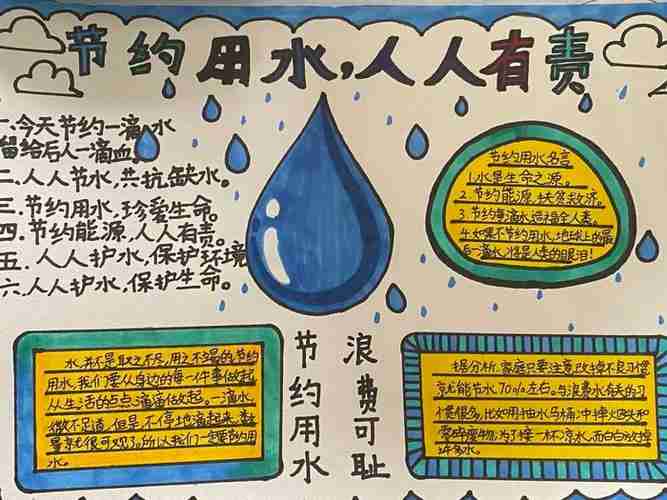 节约用水,人人有责
一.今天节约一滴水
留给后人一滴血。
二.人人节水,共抗缺水。
三.节约用水,珍爱生命。
四.节约能源,人人有责。
五.人人护水,保护环境
六.人人护水,保护生命。
节约用水名言
1.水是生命之源。
2.节约能源,
3.节约每滴水,造福全人类。
4.如果不节约用水,地球上的最
后一滴水,将是人类的眼泪!
节约用水
浪费可耻
水,并不是取之不尽,用之不竭的节约
用水,我们要从身边的每一件事做起,
从生活的点点滴滴做起。一滴水,
微不足道,但是不停地滴起来,数
量就很可观了,所以我们一定要节约用
水。
据分析,家庭只要注意改掉不良习惯
就能节水70%左右。与浪费水有关的习
惯很多,比如用抽水马桶冲掉烟头和
零碎废物,为了接一杯凉水,而白白放掉
许多水。